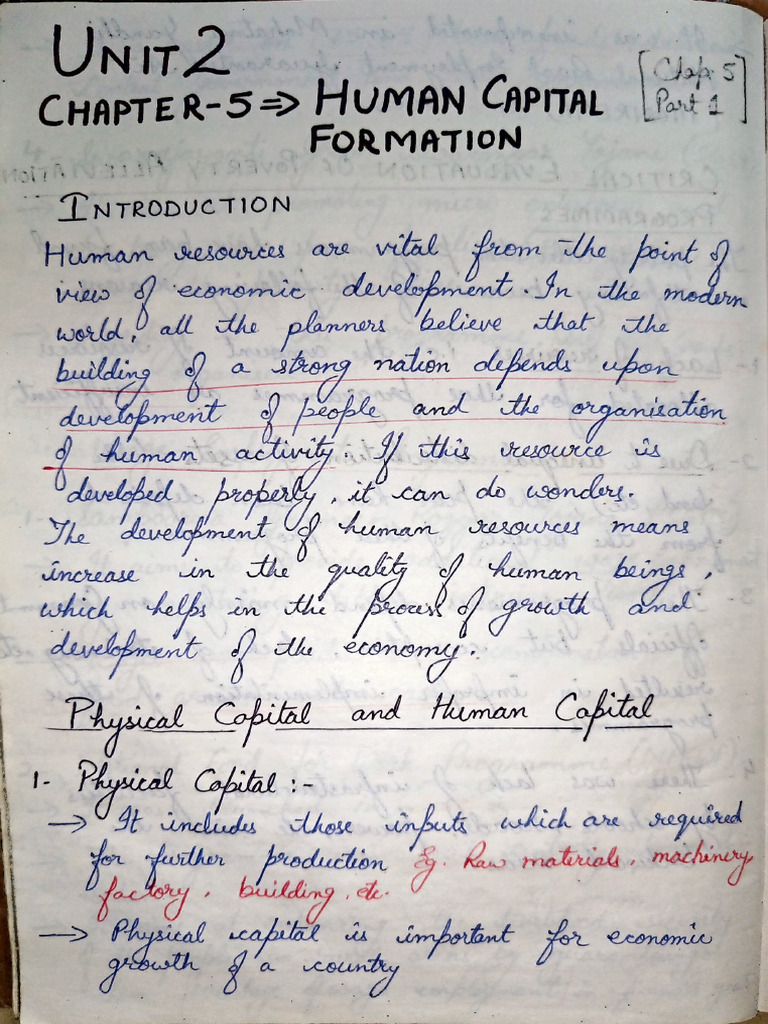 UNIT 2
[Chap. 5
Part 1]
CHAPTER-5 ⇒ HUMAN CAPITAL
FORMATION
INTRODUCTION
Human resources are vital from the point of
view of economic development. In the modern
world, all the planners believe that the
building of a strong nation depends upon
development of people and the organisation
of human activity. If this resource is
developed properly, it can do wonders.
The development of human resources means
increase in the quality of human beings,
which helps in the process of growth and
development of the economy.
Physical Capital and Human Capital
1- Physical Capital :-
→ It includes those inputs which are required
for further production Eg. Raw materials, machinery,
factory, building, etc.
→ Physical capital is important for economic
growth of a country